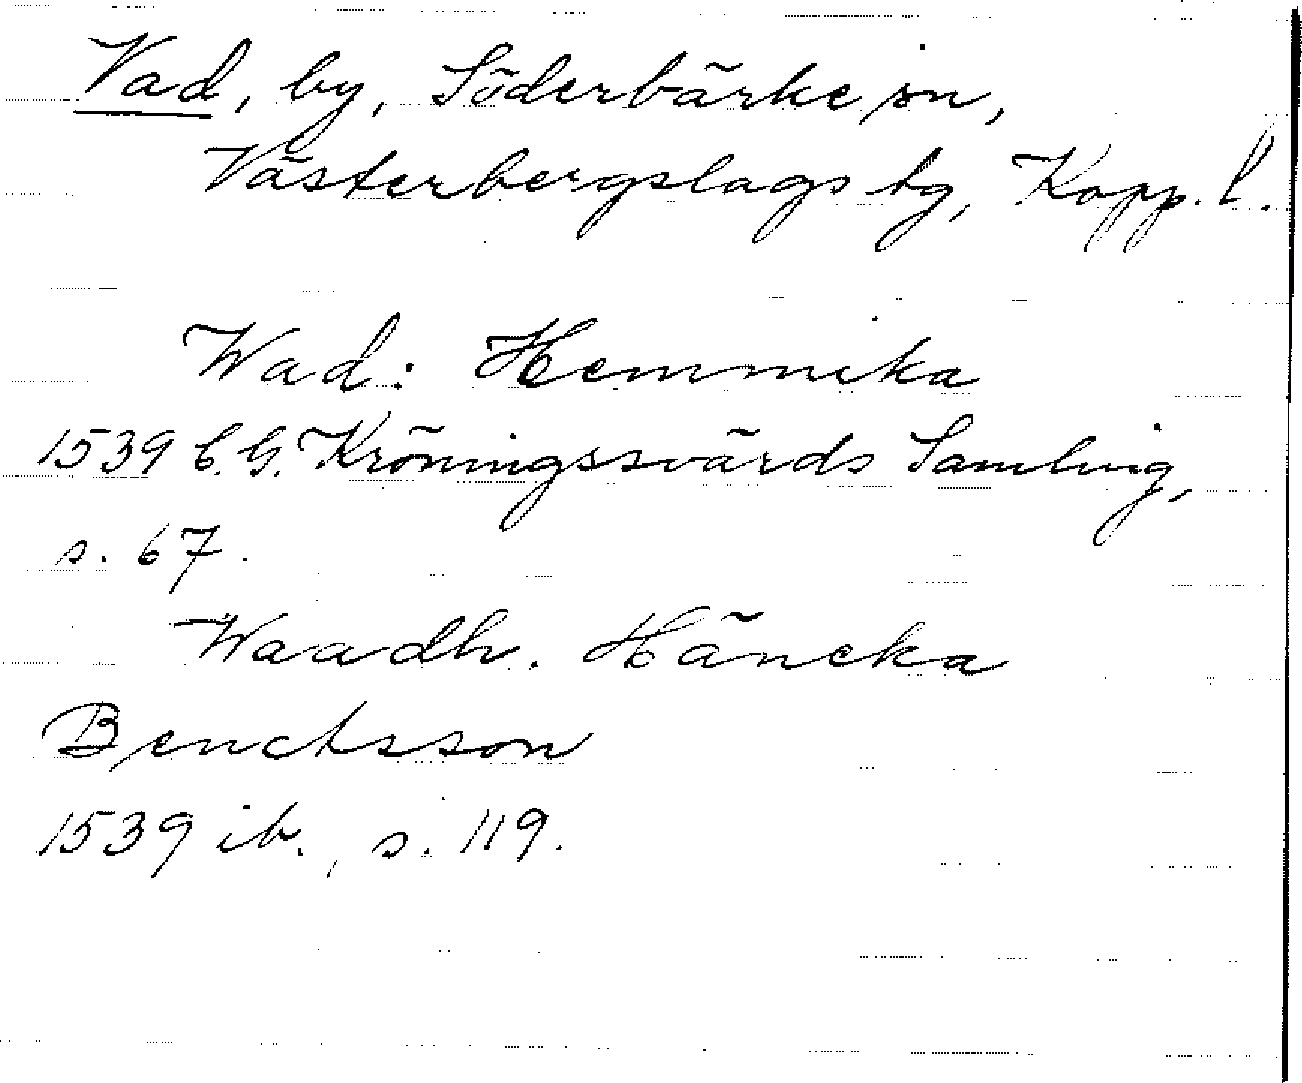 Vad, by, Söderbärke sn,
Västerbergslags tg, Kopp. l.
Wad: Hemmika
1539 C.G. Kröningssvärds Samling,
s. 67.
Waadh. Häncka
Benctsson
1539 ib., s. 119.